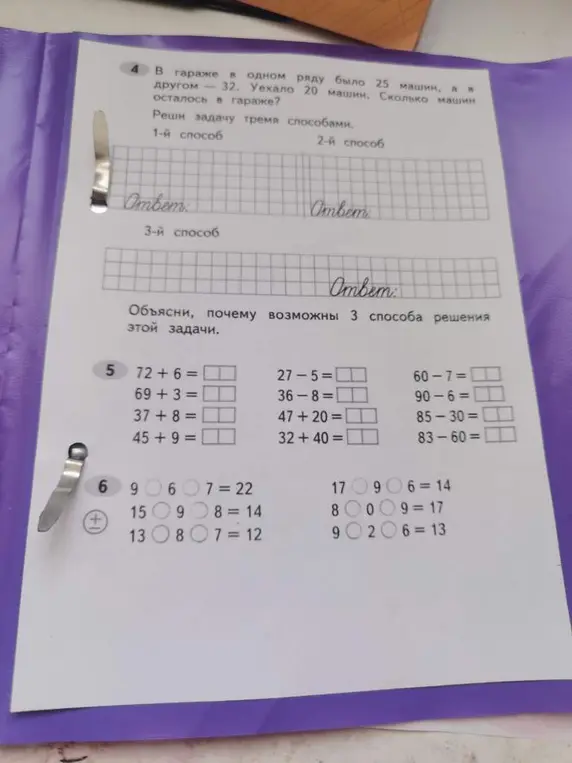 4 В гараже в одном ряду было 25 машин, а в
другом — 32. Уехало 20 машин. Сколько машин
осталось в гараже?
Реши задачу тремя способами.
1-й способ 2-й способ
Ответ: Ответ:
3-й способ
Ответ:
Объясни, почему возможны 3 способа решения
этой задачи.
5 72 + 6 = 27 − 5 = 60 − 7 =
69 + 3 = 36 − 8 = 90 − 6 =
37 + 8 = 47 + 20 = 85 − 30 =
45 + 9 = 32 + 40 = 83 − 60 =
6 9 ○ 6 ○ 7 = 22 17 ○ 9 ○ 6 = 14
± 15 ○ 9 ○ 8 = 14 8 ○ 0 ○ 9 = 17
13 ○ 8 ○ 7 = 12 9 ○ 2 ○ 6 = 13